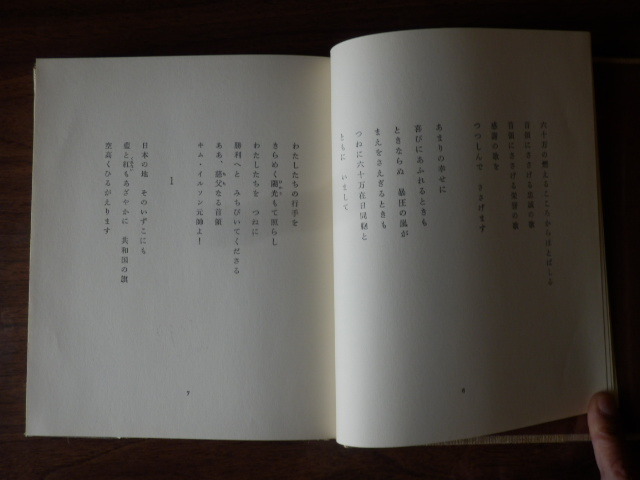 六十万の燃えるこころからほとばしる
首領にささげる忠誠の歌
首領にささげる深謝の歌
感謝の歌を
つつしんで ささげます
あまりの幸せに
喜びにあふれるときも
ときならぬ 暴圧の風が
まえをさえぎるときも
つねに六十万在日同胞と
ともに いまして
6
わたしたちの行手を
きらめく陽光もて照らし
わたしたちを つねに
勝利へと みちびいてくださる
ああ、慈父なる首領
キム・イルソン元帥よ!
1
日本の地 そのいずこにも
藍と紅もあざやかに 共和国の旗
空高くひるがえります
7